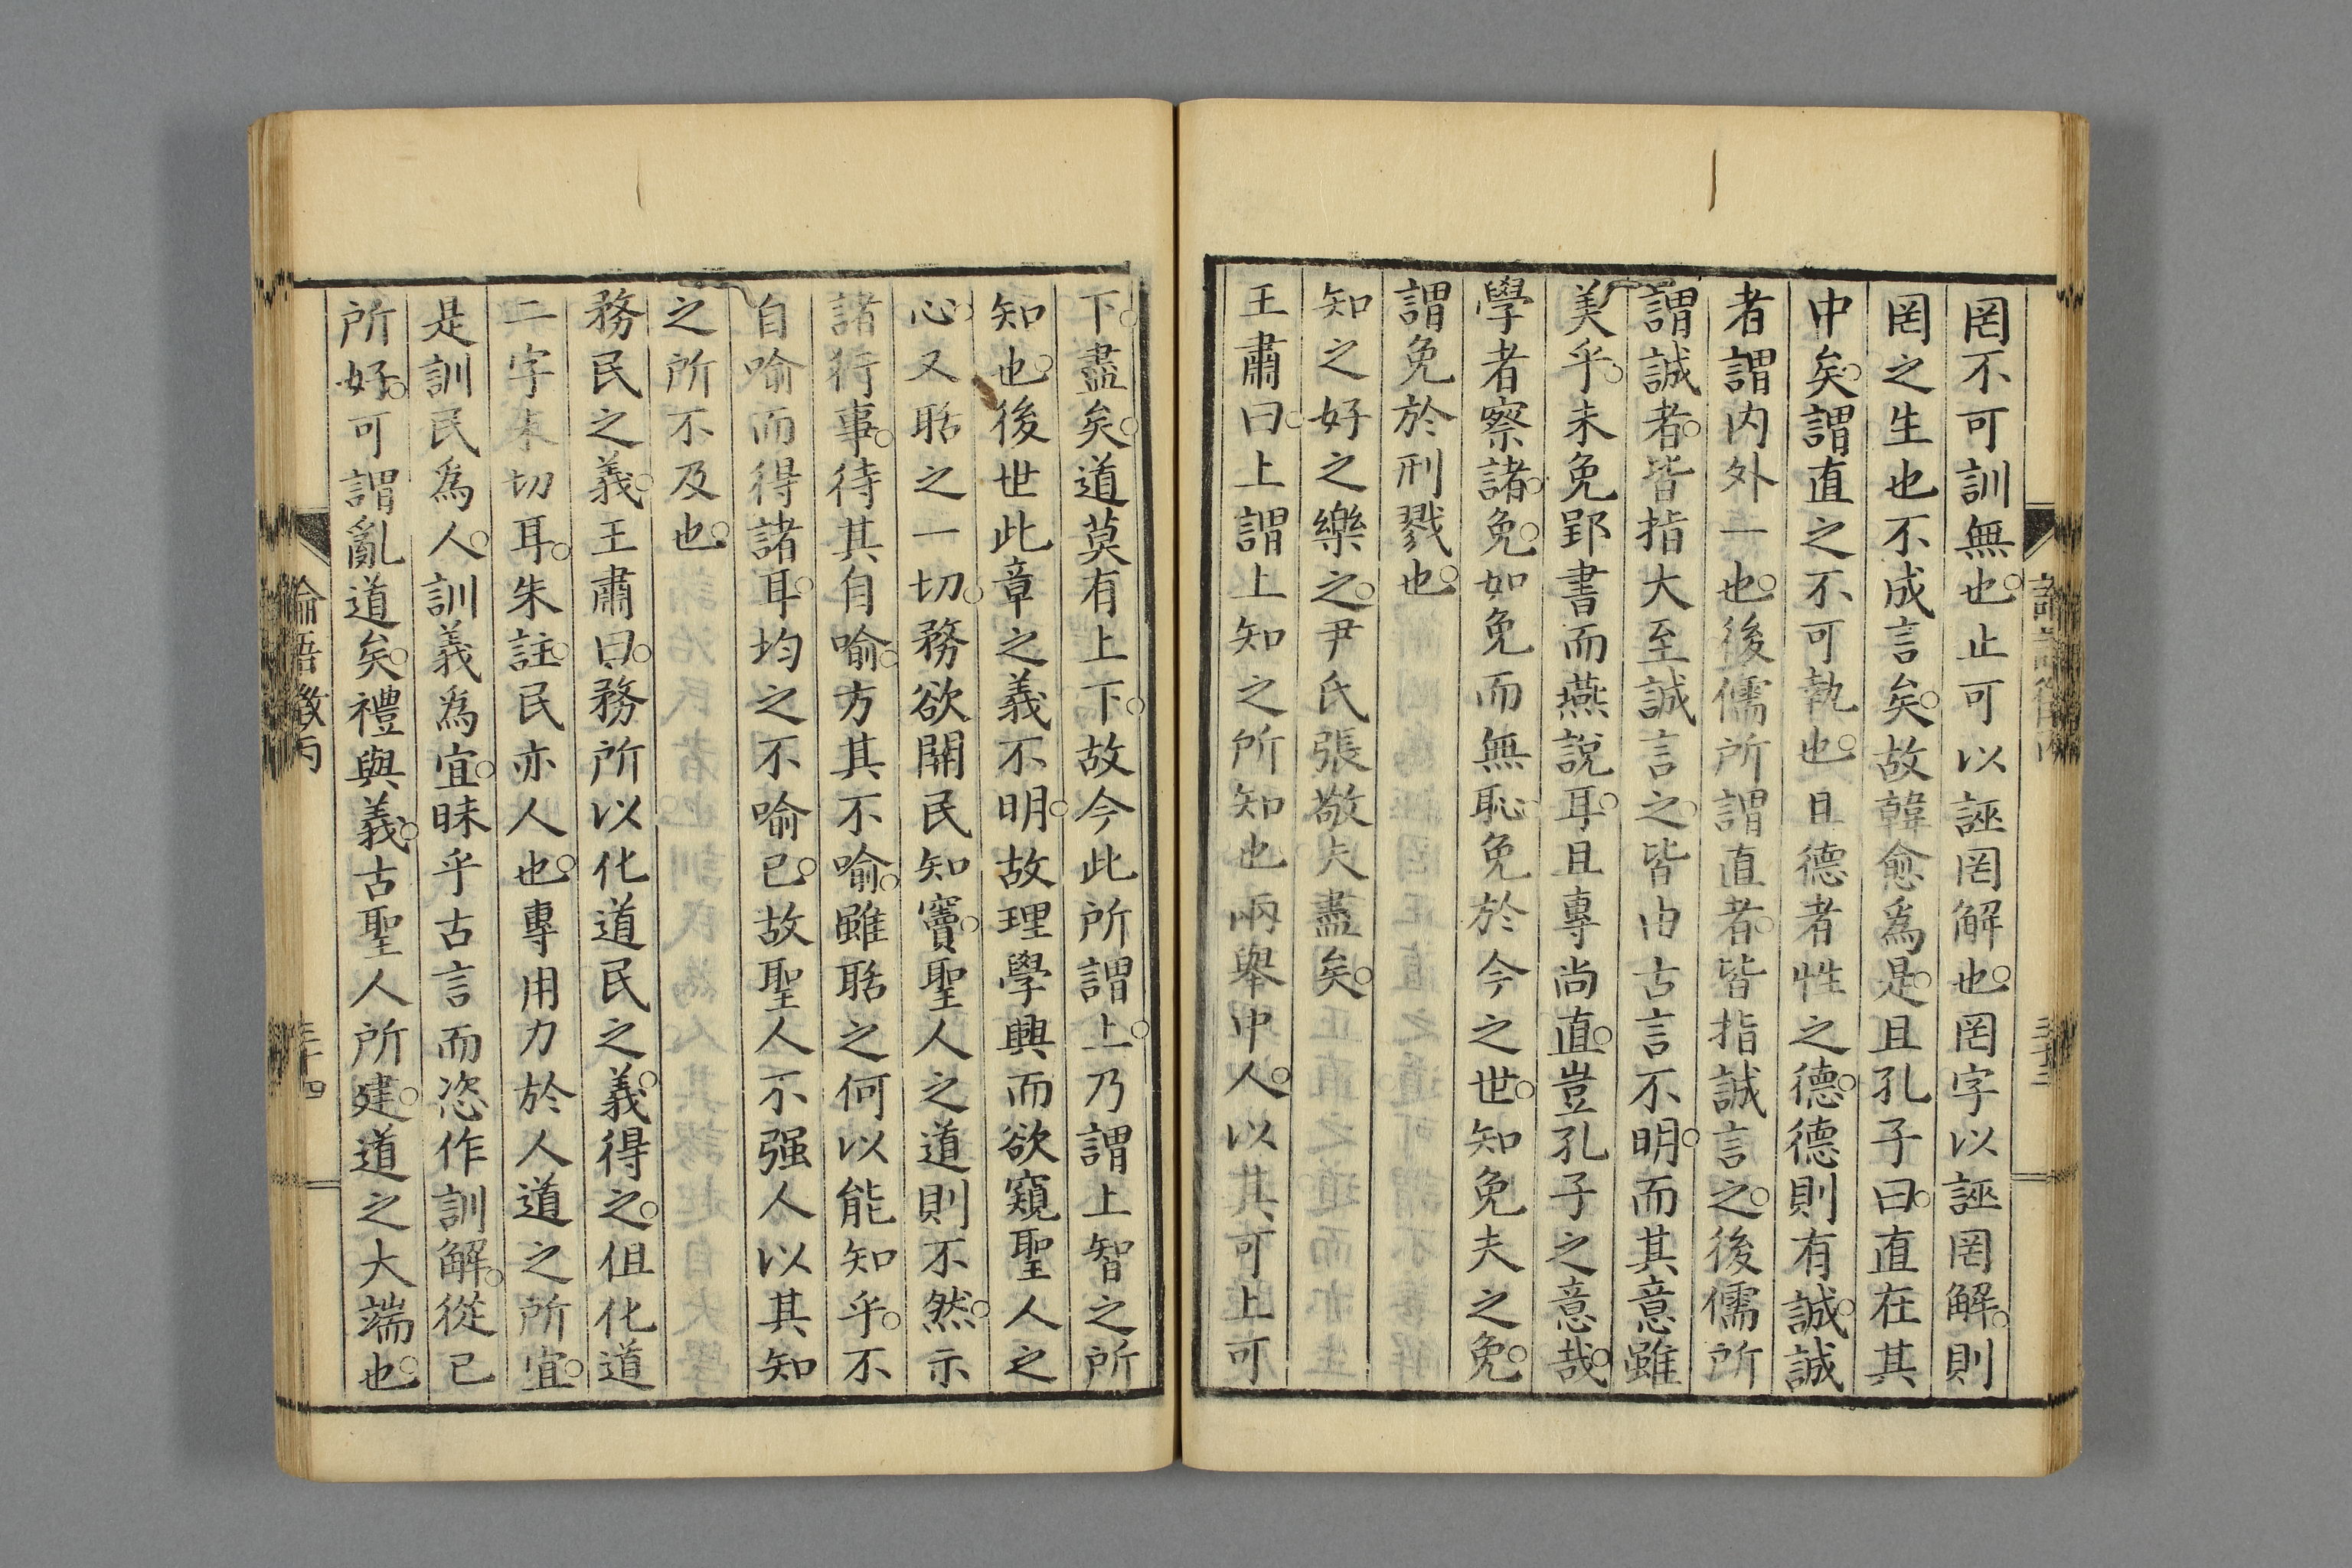 罔不可訓無也。止可以誣罔解也。罔字以誣罔解。則
罔之生也不成言矣。故韓愈爲是。且孔子曰。直在其
中矣。謂直之不可執也。且德者性之德。德則有誠。誠
者謂内外一也。後儒所謂直者。皆指誠言之。後儒所
謂誠者。皆指大至誠言之。皆由古言不明。而其意雖
美乎。未免郢書而燕說耳。且專尚直。豈孔子之意哉。
學者察諸。免。如免而無恥。免於今之世。知免夫之免。
謂免於刑戮也。
知之好之樂之。尹氏張敬夫盡矣。
王肅曰。上謂上知之所知也兩舉中人。以其可上可
下。盡矣。道莫有上下。故今此所謂上。乃謂上智之所
知也。後世此章之義不明。故理學興而欲窺聖人之
心。又聒之一切。務欲開民知竇。聖人之道則不然。示
諸行事。待其自喻。方其不喻。雖聒之何以能知乎。不
自喻而得諸耳。均之不喻已。故聖人不强人以其知
之所不及也。
務民之義。王肅曰。務所以化道民之義。得之。但化道
二字未切耳。朱註。民亦人也。專用力於人道之所宜。
是訓民爲人。訓義爲宜。昧乎古言而恣作訓解。從己
所好。可謂亂道矣。禮與義。古聖人所建。道之大端也。
論語徵丙
三十四